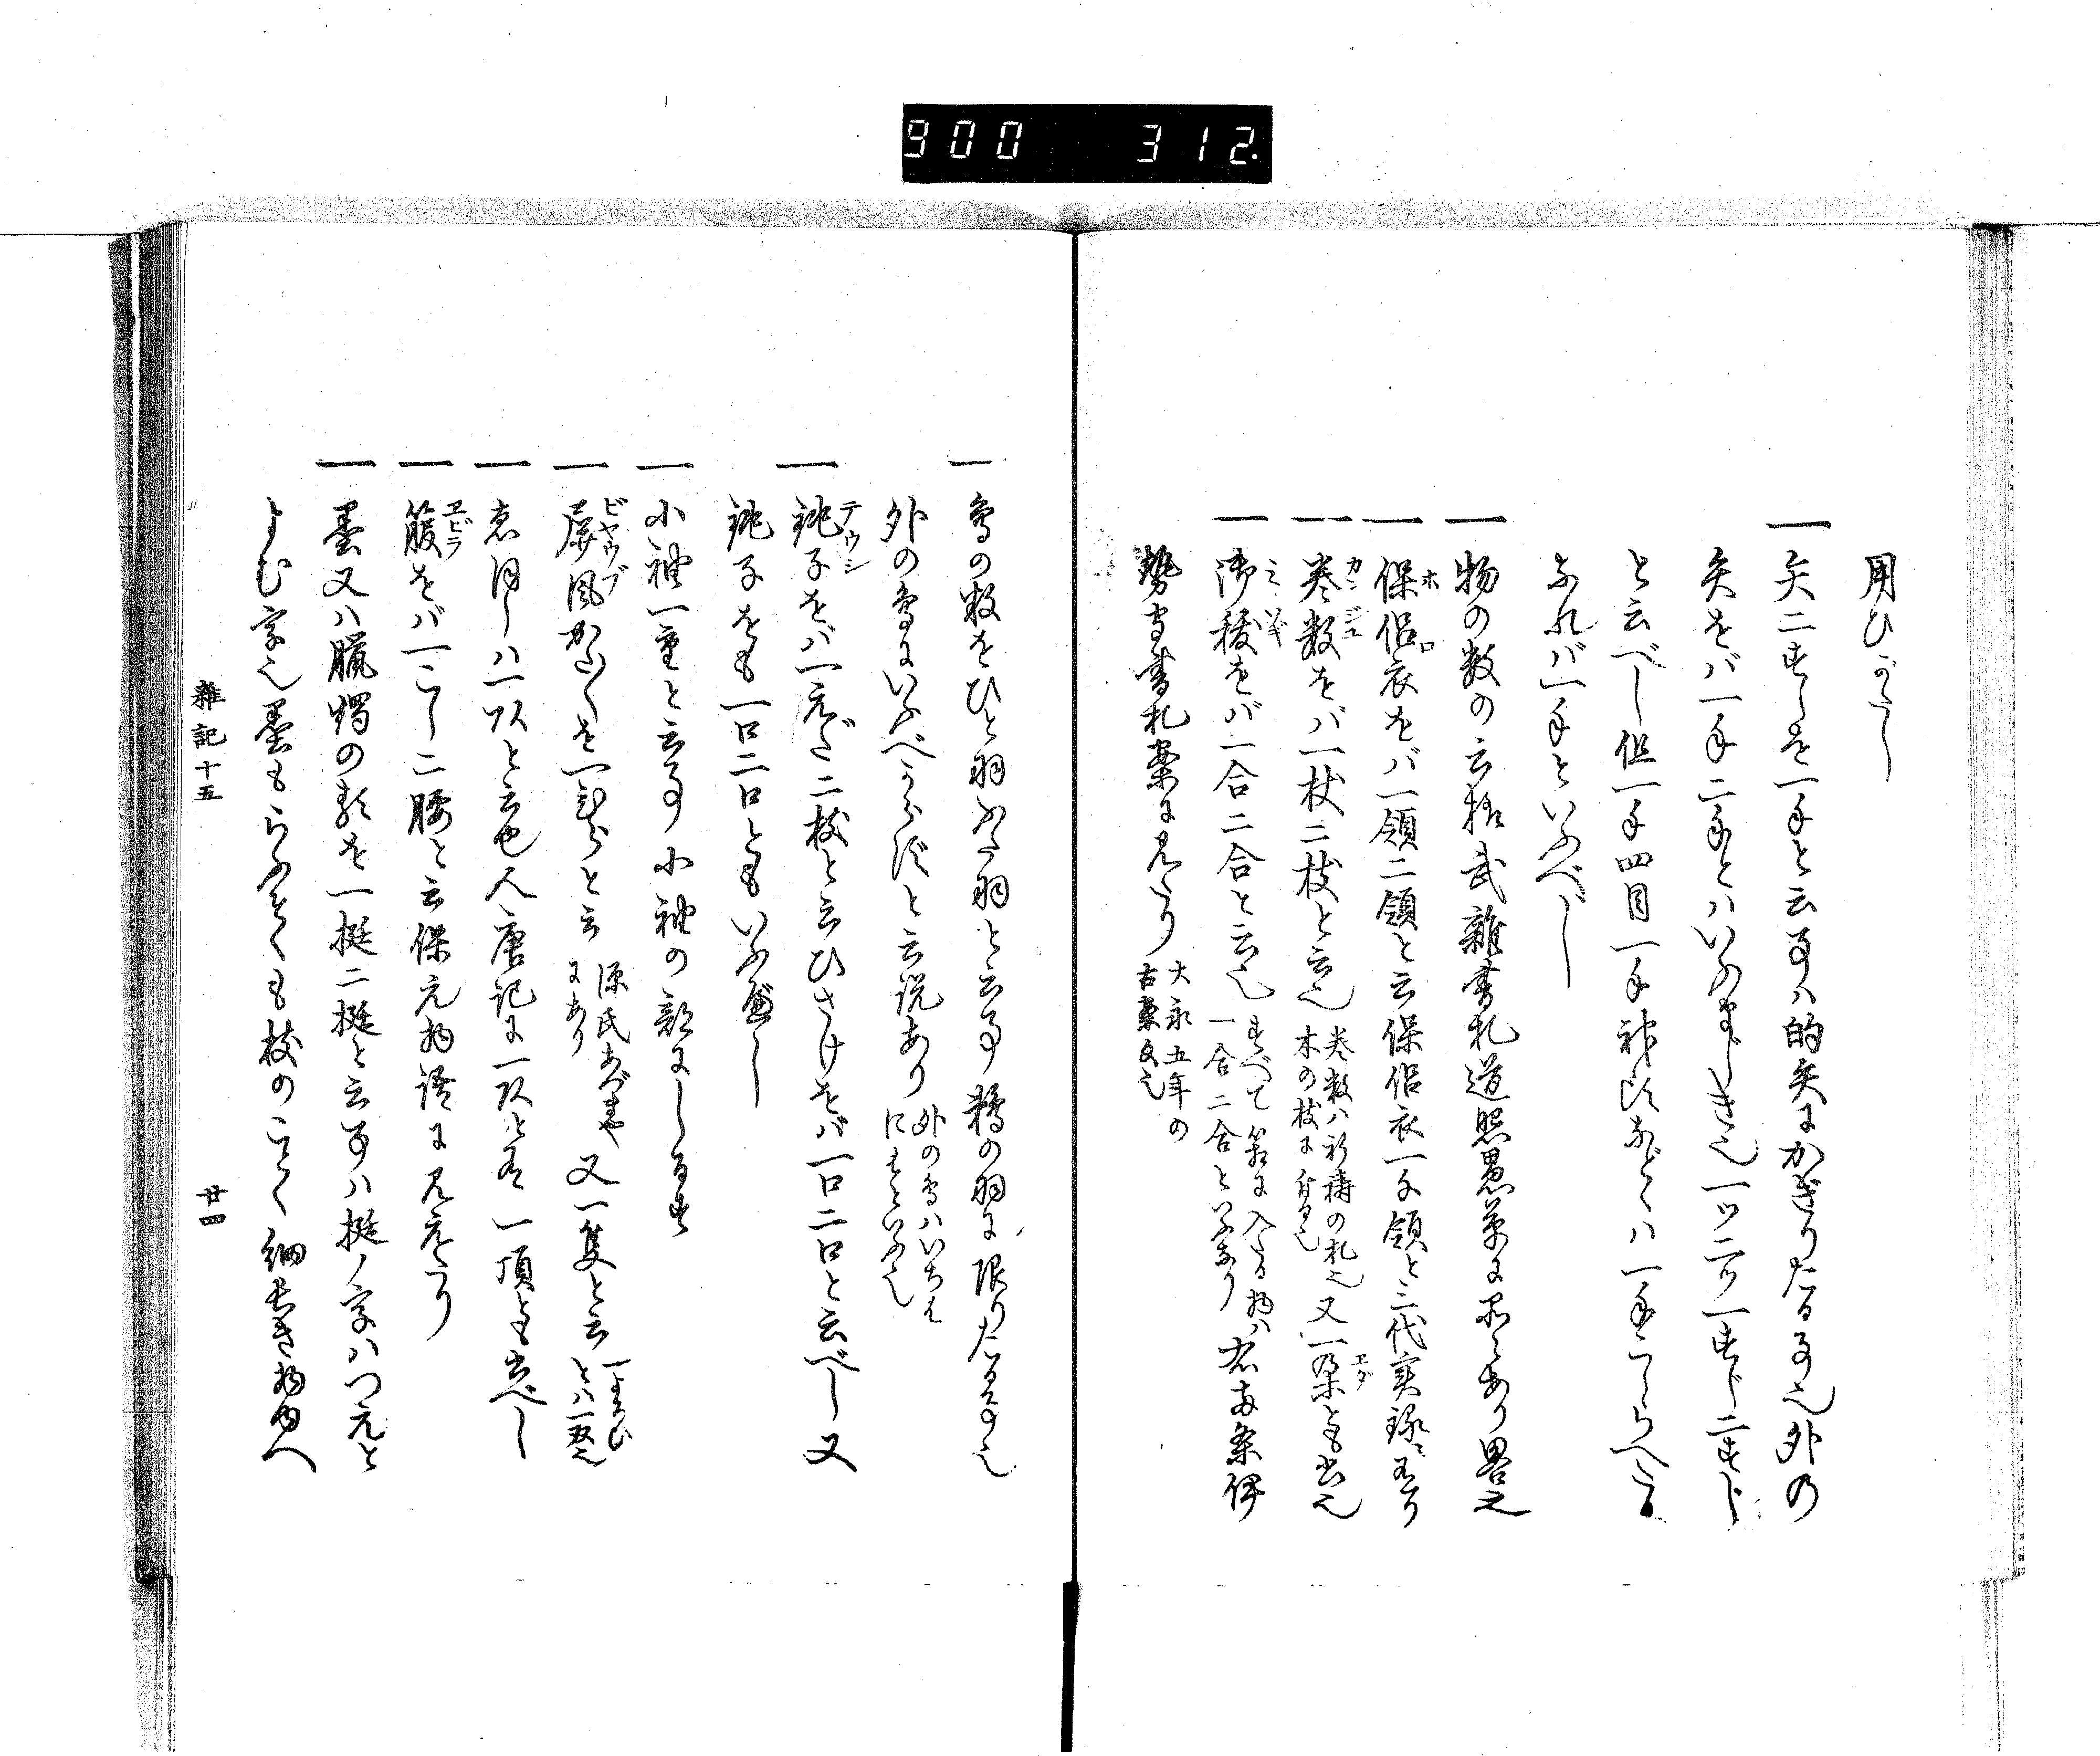 900 312.
用ひがたし
一 矢二すじを一手と云事ハ的矢にかぎりたる事也外の
矢をバ一手二手とハいふまじき也一ツ二ツ一すじ二すじ
と云べし但一手四目一手神頭などハ一手こしらへたる
なれバ一手といふべし
一 物の数の云様武雑書札道照愚草に所々あり畧之
一 保侶衣をバ一領二領と云保侶衣一千領と三代実録ニあり
ホロ
一 巻数をバ一枝二枝と云也 巻数ハ祈祷の札也木の枝に付る也 又一朶とも出也
カンジユ
エダ
一 御祓をバ一合二合と云也 すべて筥に入たる物ハ一合二合といふなり 右両条伊
勢守書札案に見たり 大永五年の古案文也
一 鳥の数をひと羽ふた羽と云事鷹の羽に限りたる事也
外の鳥にいふべからずと云説あり 外の鳥ハいちはにはといふ也
一 銚子をバ一えだ二枝と云ひさげをバ一口二口と云べし又
テウシ
銚子をも一口二口ともいふ也
一 小袖一重と云事小袖の部にしるす
一 屏風かべしろを一よろひと云 源氏あづまやにあり 又一隻と云 一よろひとハ一双也
ビヤウブ
一 烏帽子ハ一頭と云也人唐記に一頭と有一頂とも出べし
一 箙をバ一こし二腰と云保元物語に見えたり
エビラ
一 墨又ハ臘燭の類を一挺二挺と云事ハ挺ノ字ハつえと
よむ字也墨もらふそくも枝のことく細長き物ゆへ
雜記十五
廿四